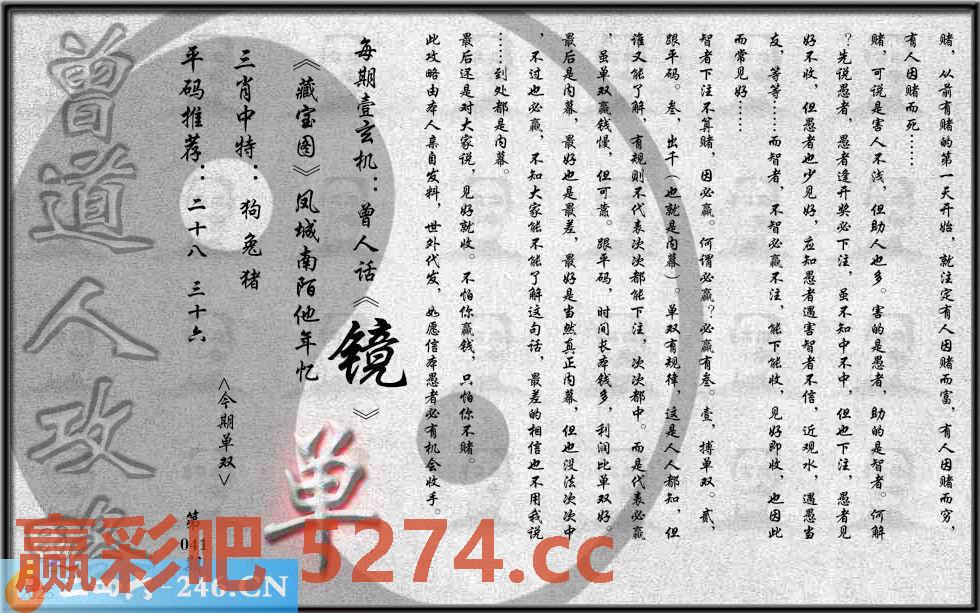 赌，从前有赌的第一天开始，就注定有人因赌而富，有人因赌而穷，
有人因赌而死……
赌，可说是害人不浅，但助人也多。害的是愚者，助的是智者。何解
？先说愚者，愚者逢开奖必下注，虽不知中不中，但也下注，愚者见
好不收，但愚者也少见好，应知愚者遇害智者不信，近观水，遇愚当
友，等等……而智者，不智必赢不注，能下能收，见好即收，也因此
而常见好……
智者下注不算赌，因必赢。何谓必赢？必赢有叁。壹，搏单双。贰，
跟平码。叁，出千（也就是内幕）。单双有规律，这是人人都知，但
谁又能了解，有规则不代表次次都能下注，次次都中。而是代表必赢
，虽单双赢钱慢，但可靠。跟平码，时间长本钱多，利润比单双好。
最后是内幕，最好也是最差，最好是当然真正内幕，但也没法次次中
，不过也必赢，不知大家能不能了解这句话，最差的相信也不用我说
……到处都是内幕。
最后还是对大家说，见好就收。不怕你赢钱，只怕你不赌。
此攻略由本人亲自发料，世外代发，如愿信本愚者必有机会收手。
每期壹玄机：曾人话《镜》
《藏宝图》凤城南陌他年忆
三肖中特：狗兔猪
平码推荐：二十八 三十六
<今期单双>
单
第
041
曾道人攻
赢彩吧 5274.cc
246.CN
2023